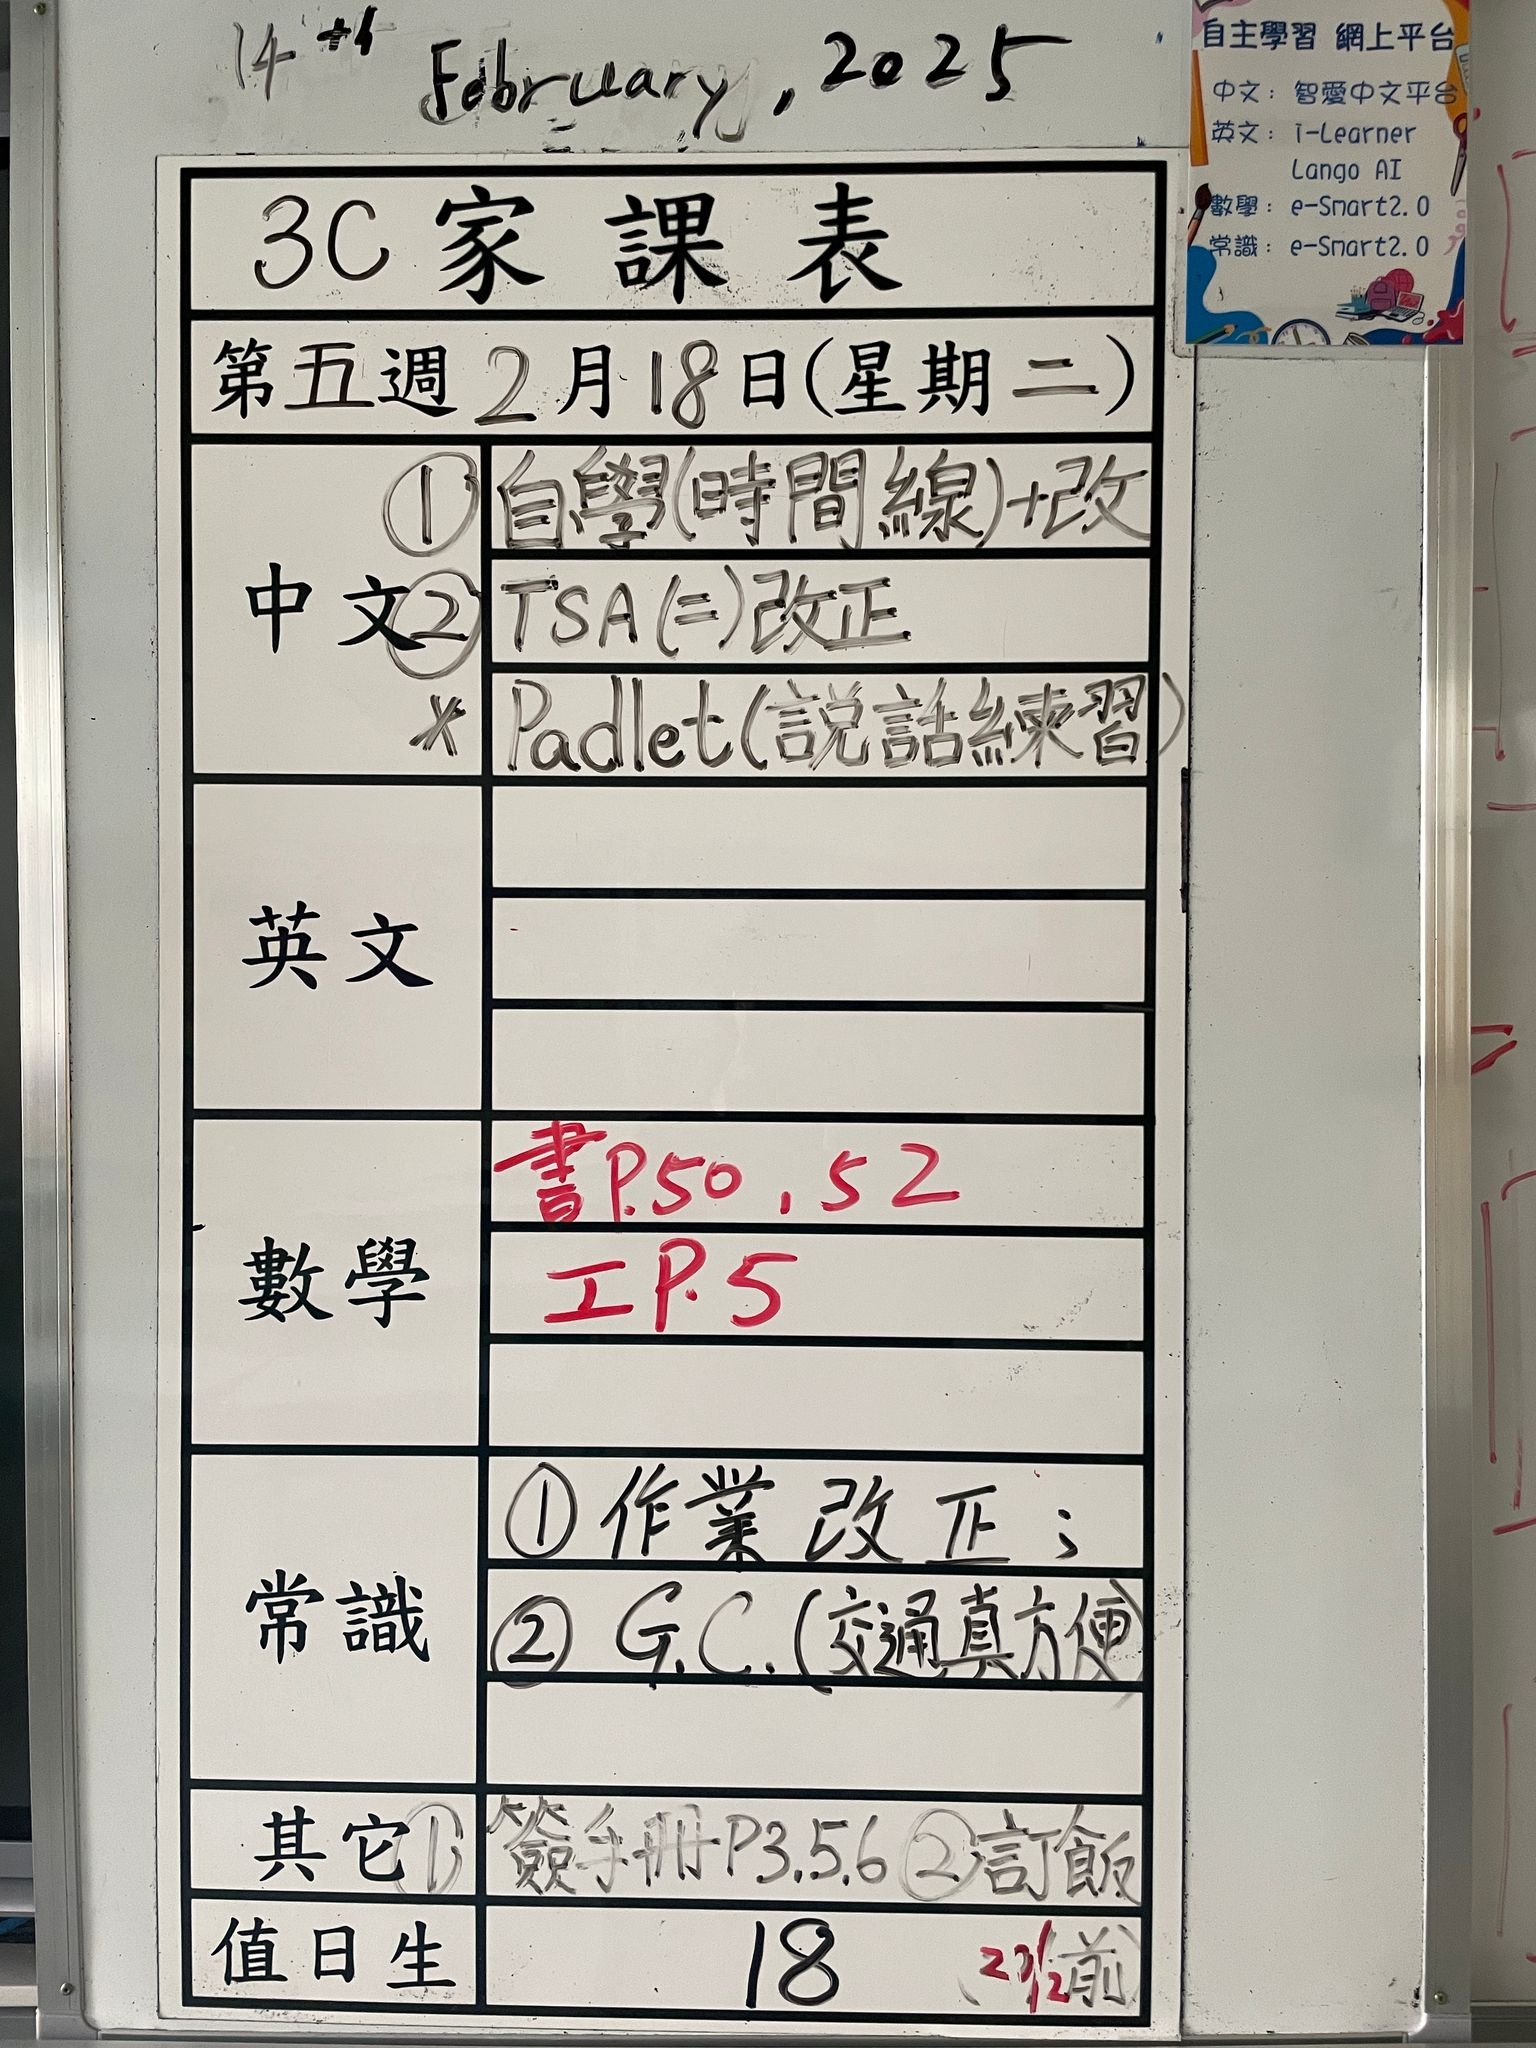 14th February, 2025
自主學習 網上平台
中文：智愛中文平台
英文：i-Learner
Lango AI
數學：e-Smart2.0
常識：e-Smart2.0
3C家課表
第五週2月18日(星期二)
中文
① 自學(時間線)+改
② TSA(二)改正
* Padlet(説話練習)
英文
數學
書P.50,52
工P.5
常識
①作業改正;
② G.C.(交通真方便)
其它 ① 簽手冊P3.5.6 ②訂飯
值日生 18
前)